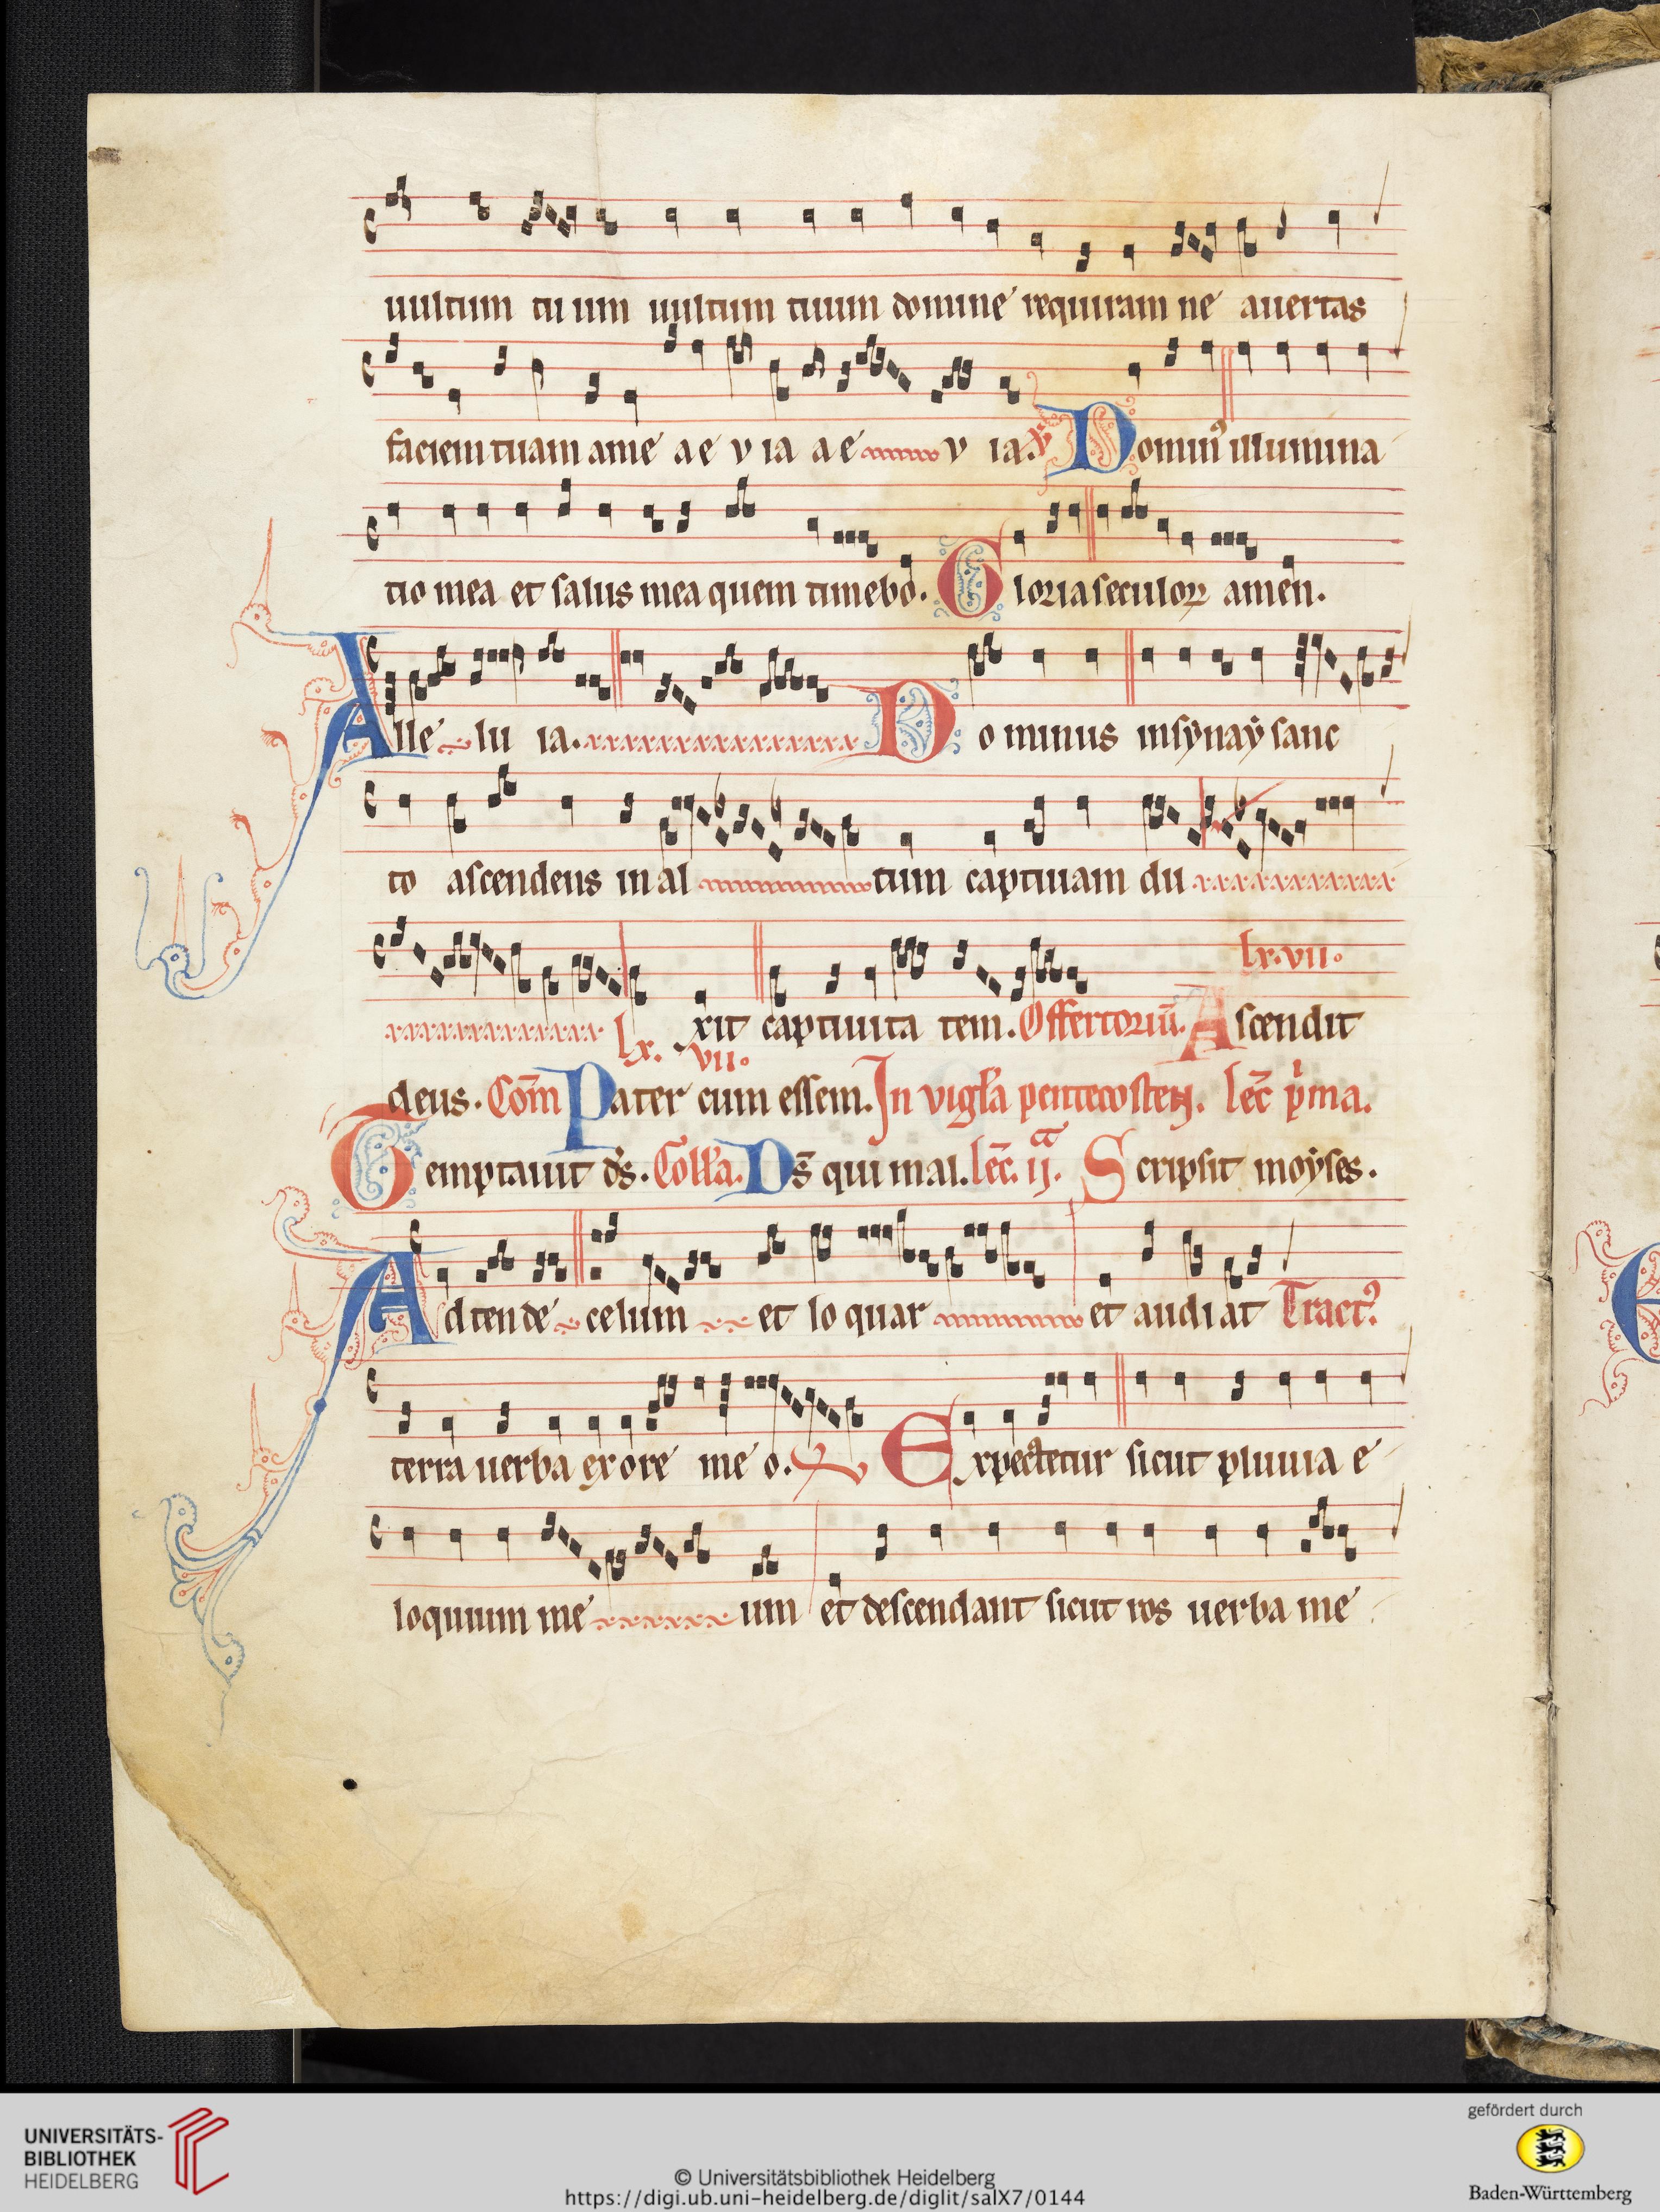 uultum tu um uultum tuum domine requiram ne auertas
faciem tuam a me a e v ia a e v ia. ℣ Dominꝰ illumina
tio mea et salus mea quem timebo. Gloria seculoꝝ amen.
Alle lu ia. Do minus in synaÿ sanc
to ascendens in al tum captiuam du
lx.vii.
xit captiuita tem. Offertoriū. Ascendit
lx. vii.
deus. Com̄ Pater cum essem. In vigl'a pentecosten. lec̄ p'ma.
Temptauit ds̄. Coll'a. Ds̄ qui mal. lec̄. ij.a Scripsit moÿses.
Ad ten de celum et lo quar et audi at Tractꝰ
terra uerba ex ore me o. Expectetur sicut pluuia e
loquium me um et descendant sicut ros uerba me
UNIVERSITÄTS-
BIBLIOTHEK
HEIDELBERG
© Universitätsbibliothek Heidelberg
https://digi.ub.uni-heidelberg.de/diglit/salX7/0144
gefördert durch
Baden-Württemberg